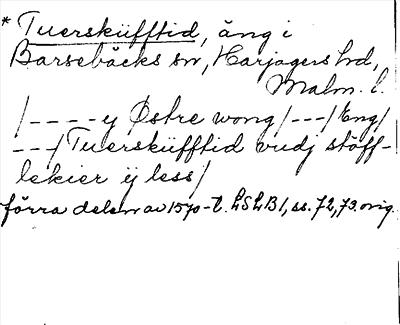 * Tuersküfftid, äng i
Barsebäcks sn, Harjagers hd,
Malm. l.
/ - - - - y Østre wong / - - - / Eng /
- - - / Tuersküfftid vudj stöff-
lekier ÿ less /
förra delen av 1570-t. LSLB1, ss. 72, 73. orig.